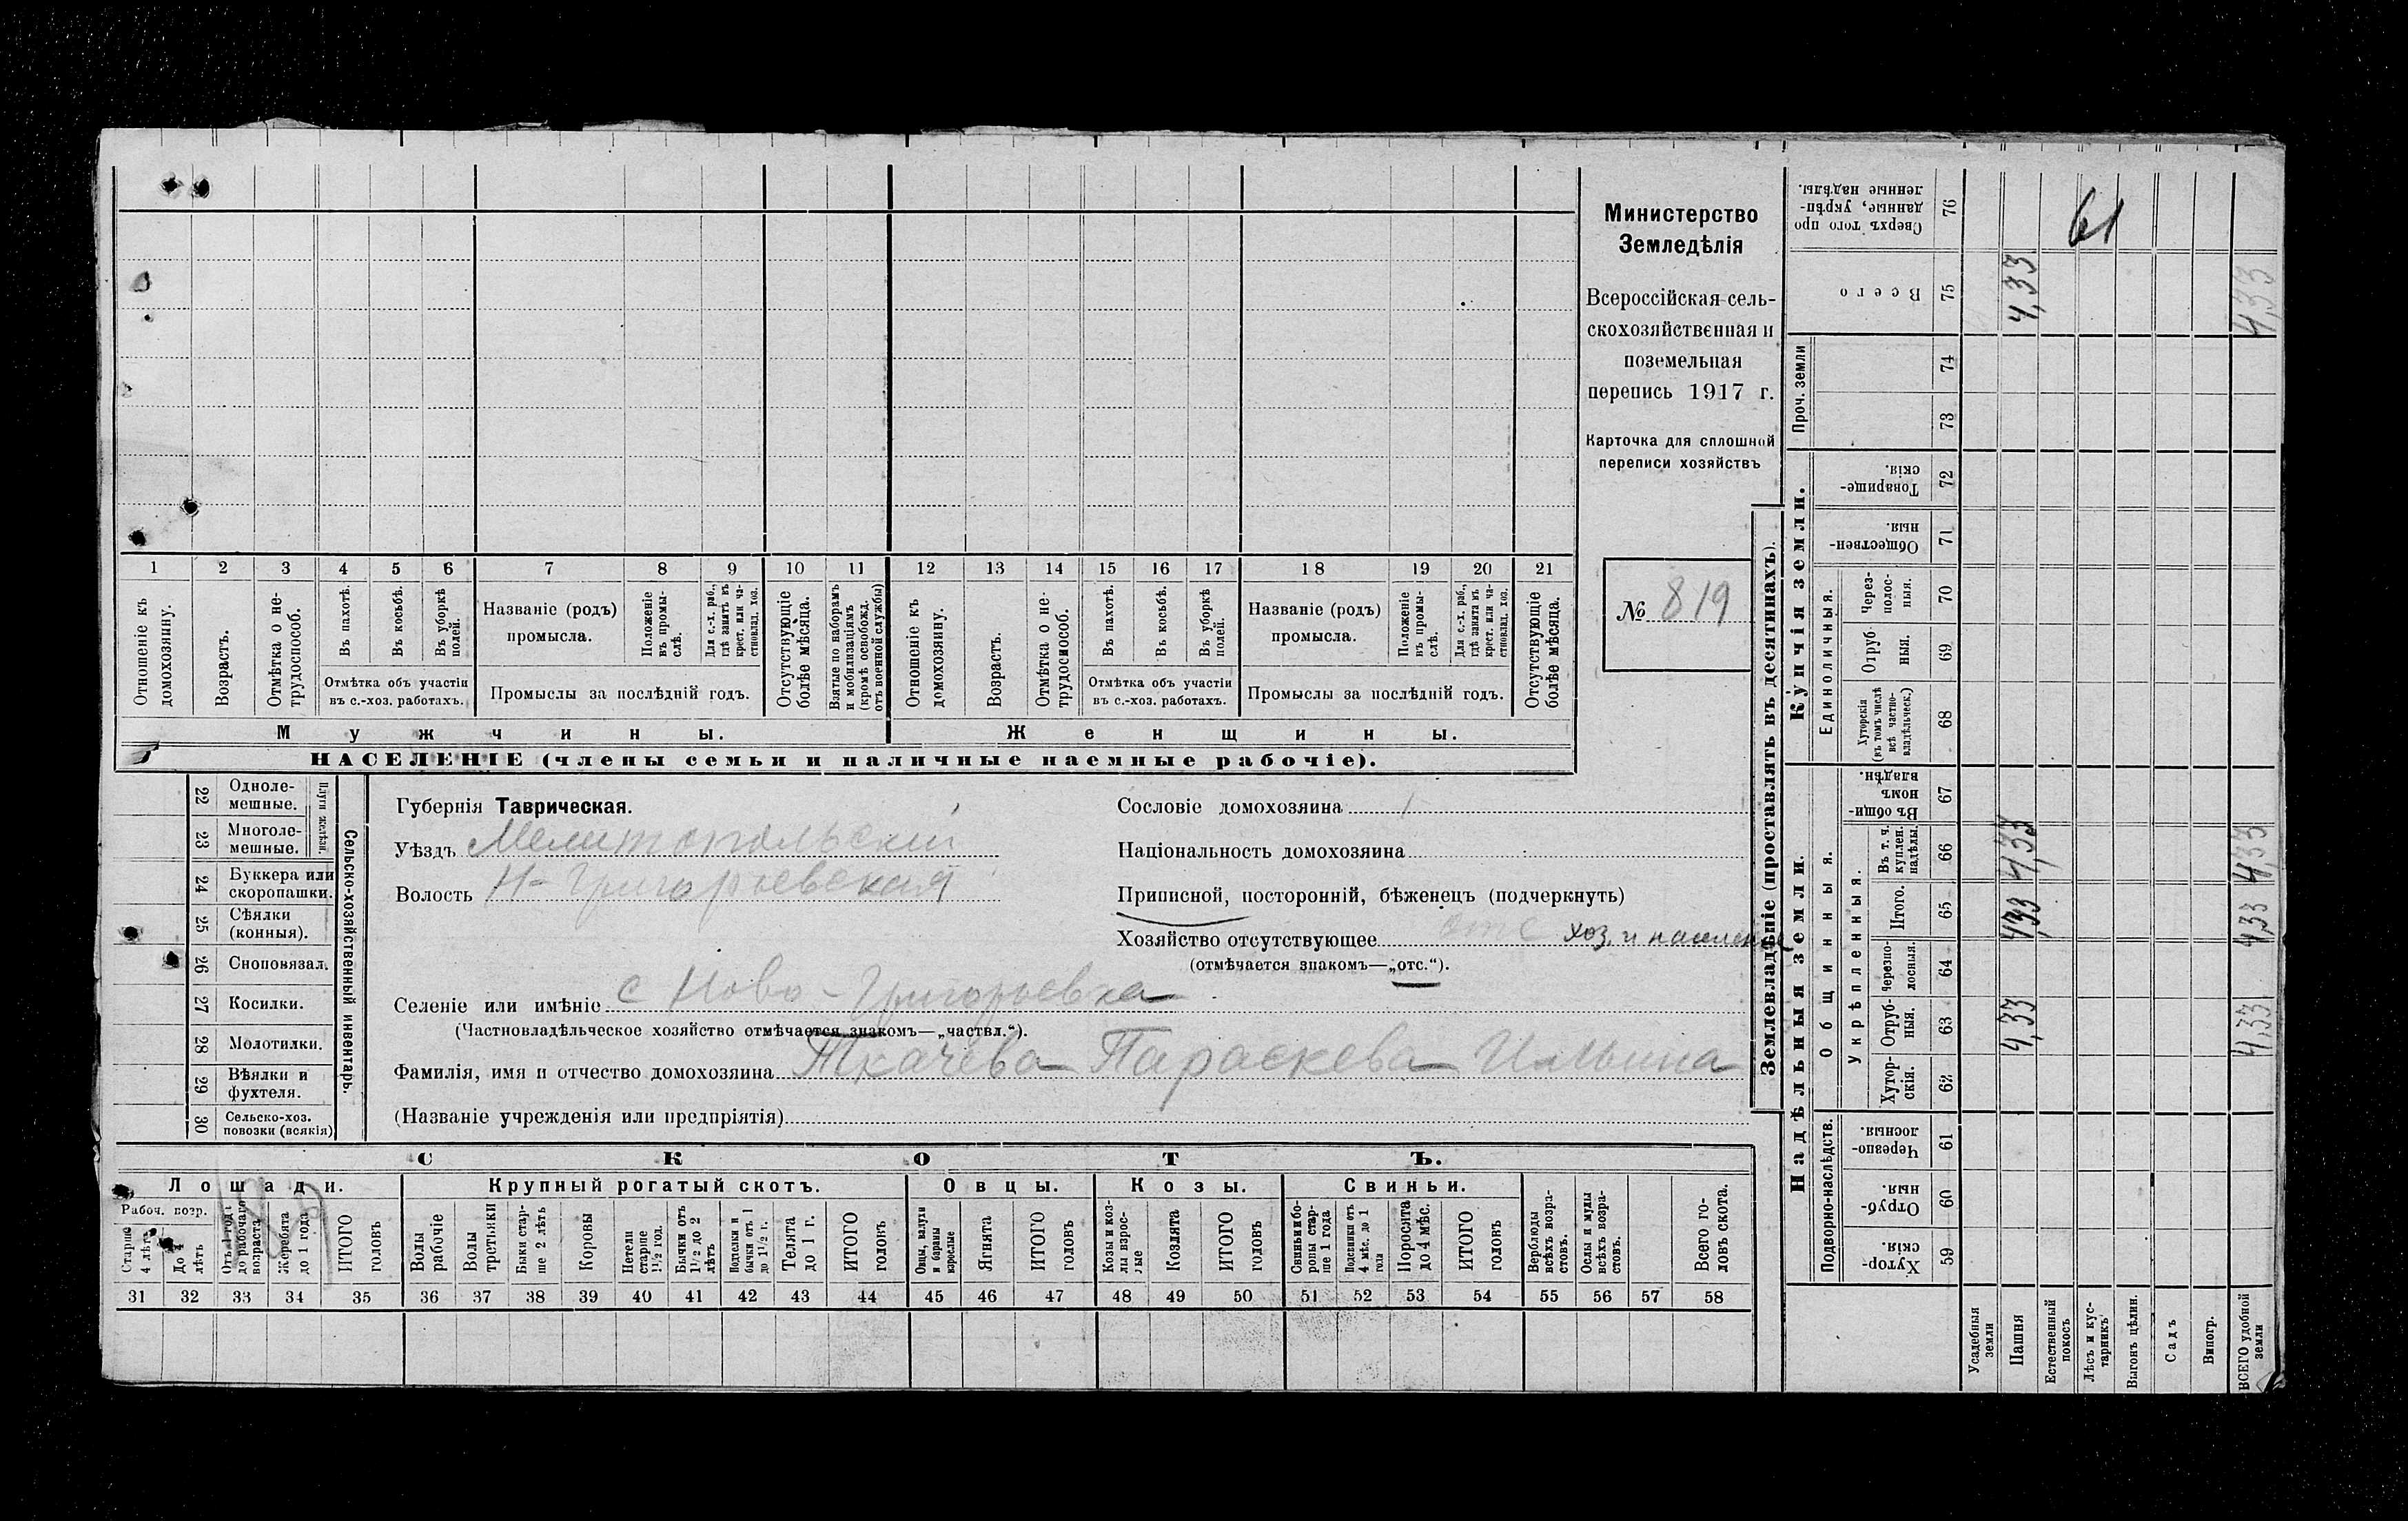 Министерство
Земледѣлія
Всероссійская сель-
скохозяйственная и
поземельная
перепись 1917 г.
Карточка для сплошной
переписи хозяйствъ
№ 819
1 2 3 4 5 6 7 8 9 10 11 12 13 14 15 16 17 18 19 20 21
Отношеніе къ домохозяину.
Возрастъ.
Отмѣтка о не-трудоспособ.
Въ пахотѣ.
Въ косьбѣ.
Въ уборкѣ полей.
Отмѣтка объ участіи
въ с.-хоз. работахъ.
Названіе (родъ)
промысла.
Положеніе въ промы-слѣ.
Для с.-х. раб., гдѣ занятъ въ крест. или ча-стновлад. хоз.
Промыслы за послѣдній годъ.
Отсутствующіе болѣе мѣсяца.
Взятые по наборамъ и мобилизаціямъ (кромѣ освобожд. отъ военной службы)
Отношеніе къ домохозяину.
Возрастъ.
Отмѣтка о не-трудоспособ.
Въ пахотѣ.
Въ косьбѣ.
Въ уборкѣ полей.
Отмѣтка объ участіи
въ с.-хоз. работахъ.
Названіе (родъ)
промысла.
Положеніе въ промы-слѣ.
Для с.-х. раб., гдѣ занята въ крест. или ча-стновлад. хоз.
Промыслы за послѣдній годъ.
Отсутствующіе болѣе мѣсяца.
Мужчины. Женщины.
НАСЕЛЕНІЕ (члены семьи и наличные наемные рабочіе).
Сельско-хозяйственный инвентарь.
Плуги желѣзн.
22 Одноле-мешные.
23 Многоле-мешные.
24 Буккера или скоропашки.
25 Сѣялки (конныя).
26 Сноповязал.
27 Косилки.
28 Молотилки.
29 Вѣялки и фухтеля.
30 Сельско-хоз. повозки (всякія)
Губернія Таврическая.
Уѣздъ Мелитопольскій
Волость Н-Григорьевская
Сословіе домохозяина
Національность домохозяина
Приписной, посторонній, бѣженецъ (подчеркнуть)
Хозяйство отсутствующее отс хоз. и населеніе
(отмѣчается знакомъ—„отс.“).
Селеніе или имѣніе с Ново-Григорьевка
(Частновладѣльческое хозяйство отмѣчается знакомъ—„частвл.“).
Фамилія, имя и отчество домохозяина Ткачева Параскева Ильина
(Названіе учрежденія или предпріятія)
СКОТЪ.
Лошади. Крупный рогатый скотъ. Овцы. Козы. Свиньи.
Рабоч. возр.
Старше 4 лѣтъ
До 4 лѣтъ
Отъ 1 года до рабочаго возраста
Жеребята до 1 года
ИТОГО головъ
Волы рабочіе
Волы третьяки
Быки стар-ше 2 лѣтъ
Коровы
Нетели старше 1½ год.
Бычки отъ 1½ до 2 лѣтъ
Подтелки и бычки отъ 1 до 1½ г.
Телята до 1 г.
ИТОГО головъ
Овцы, валухи и бараны взрослые
Ягнята
ИТОГО головъ
Козы и коз-лы взрос-лые
Козлята
ИТОГО головъ
Свиньи и бо-ровы стар-ше 1 года
Подсвинки отъ 4 мѣс. до 1 года
Поросята до 4 мѣс.
ИТОГО головъ
Верблюды всѣхъ возра-стовъ.
Ослы и мулы всѣхъ возра-стовъ.
Всего го-ловъ скота.
31 32 33 34 35 36 37 38 39 40 41 42 43 44 45 46 47 48 49 50 51 52 53 54 55 56 57 58
Землевладѣніе (проставлять въ десятинахъ).
Надѣльныя земли.
Купчія земли.
Проч. земли
Подворно-наслѣдств.
Общинныя.
Укрѣпленныя.
Единоличныя.
Сверхъ того про-данные, укрѣп-ленные надѣлы. 76
61
Всего 75 4,33 4,33
74
73
Товарище-скія. 72
Обществен-ныя. 71
Через-полос-ныя. 70
Отруб-ныя. 69
Хуторскія (въ томъ числѣ всѣ частно-владѣльческ.) 68
Въ общи-номъ владѣн. 67
Въ т. ч. куплен. надѣлы. 66 4,33 4,33
Итого. 65 4,33 4,33
Черезпо-лосныя. 64
Отруб-ныя. 63 4,33 4,33
Хутор-скія. 62
Черезпо-лосныя. 61
Отруб-ныя. 60
Хутор-скія. 59
Усадебныя земли
Пашня
Естественный покосъ
Лѣсъ и кус-тарникъ
Выгонъ цѣлин.
Садъ
Виногр.
ВСЕГО удобной земли